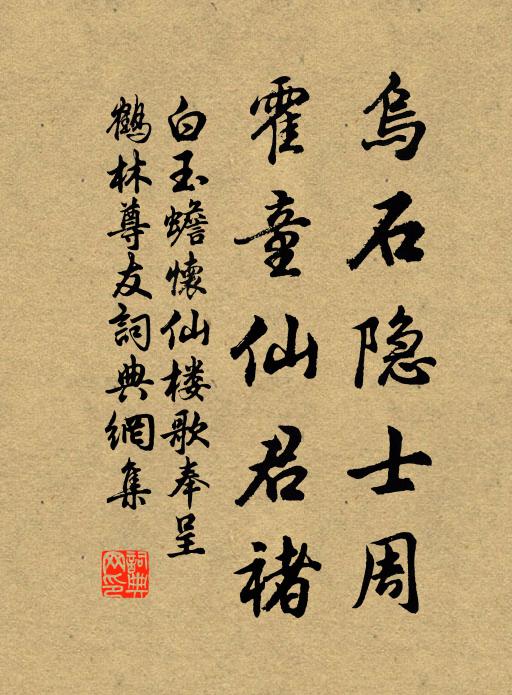 烏石隐士周
霍童仙君褚
白玉蟾懷仙楼歌奉呈
鶴林尊友詞典網集
詞典网印